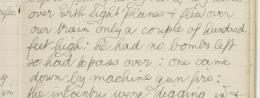 over with light planes & flew over
our train only a couple of hundred
feet high: he had no bombs left
so had to pass over: one came
down by machine gun fire:
the infantry were digging in &